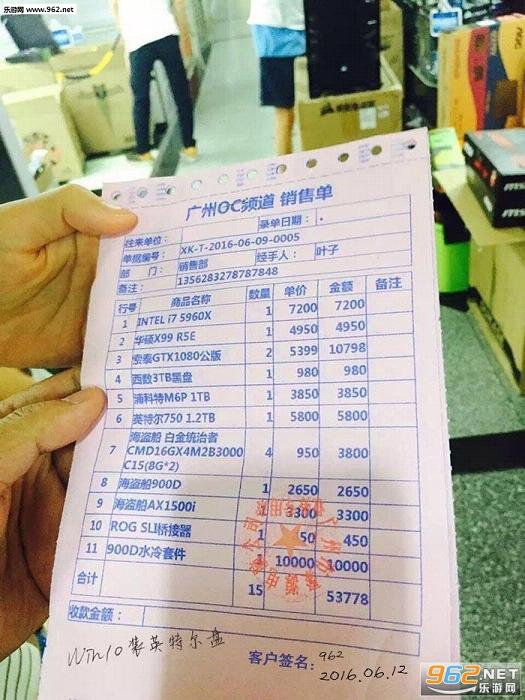 乐游网·www.962.net
广州OC频道 销售单
往来单位： 录单日期：
单据编号： XK-T-2016-06-09-0005
部 门： 销售部 经手人： 叶子
备注： 1356283278787848
行号 商品名称 数量 单价 金额 备注
1 INTEL i7 5960X 1 7200 7200
2 华硕X99 R5E 1 4950 4950
3 索泰GTX1080公版 2 5399 10798
4 西数3TB黑盘 1 980 980
5 浦科特M6P 1TB 1 3850 3850
6 英特尔750 1.2TB 1 5800 5800
7 海盗船 白金统治者 CMD16GX4M2B3000 C15(8G*2) 4 950 3800
8 海盗船900D 1 2650 2650
9 海盗船AX1500i 3300 3300
10 ROG SLI桥接器 450
11 900D水冷套件 1 10000 10000
合计 15 53778
收款金额：
Win10装英特尔盘
客户签名： 962
2016.06.12
962.NET
乐游网